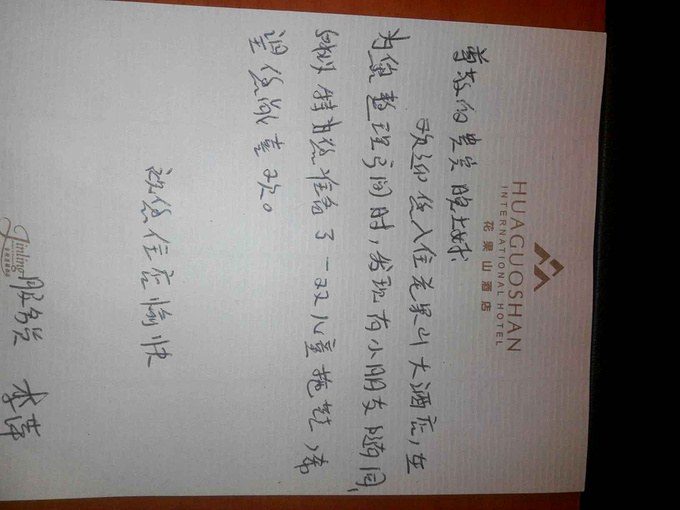 HUAGUOSHAN
INTERNATIONAL HOTEL
花果山酒店
尊敬的贵宾晚上好
欢迎您入住花果山大酒店，在
为您整理房间时，发现有小朋友随同，
所以特为您准备了一双儿童拖鞋，希
望您能喜欢。
祝您住店愉快
服务员 李萍
Jinling